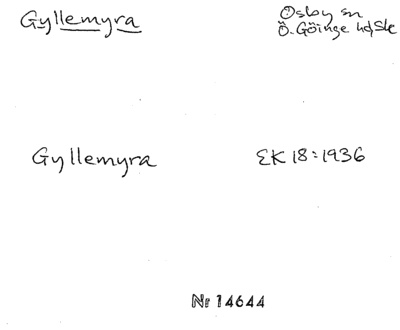 Gyllemyra
Osby sn
Ö. Göinge hd, Sk
Gyllemyra
EK 18:1936
Nr 14644